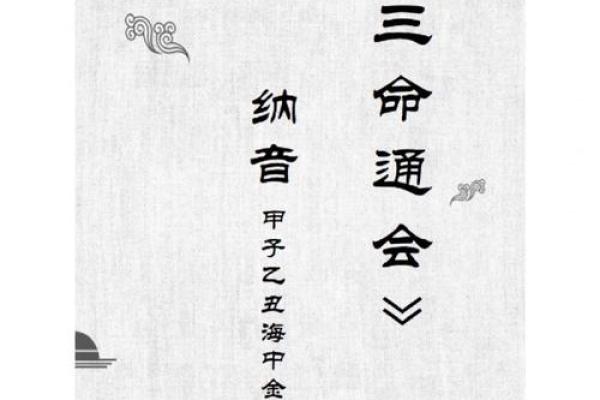 三命通会》
纳音
甲子乙丑海中金